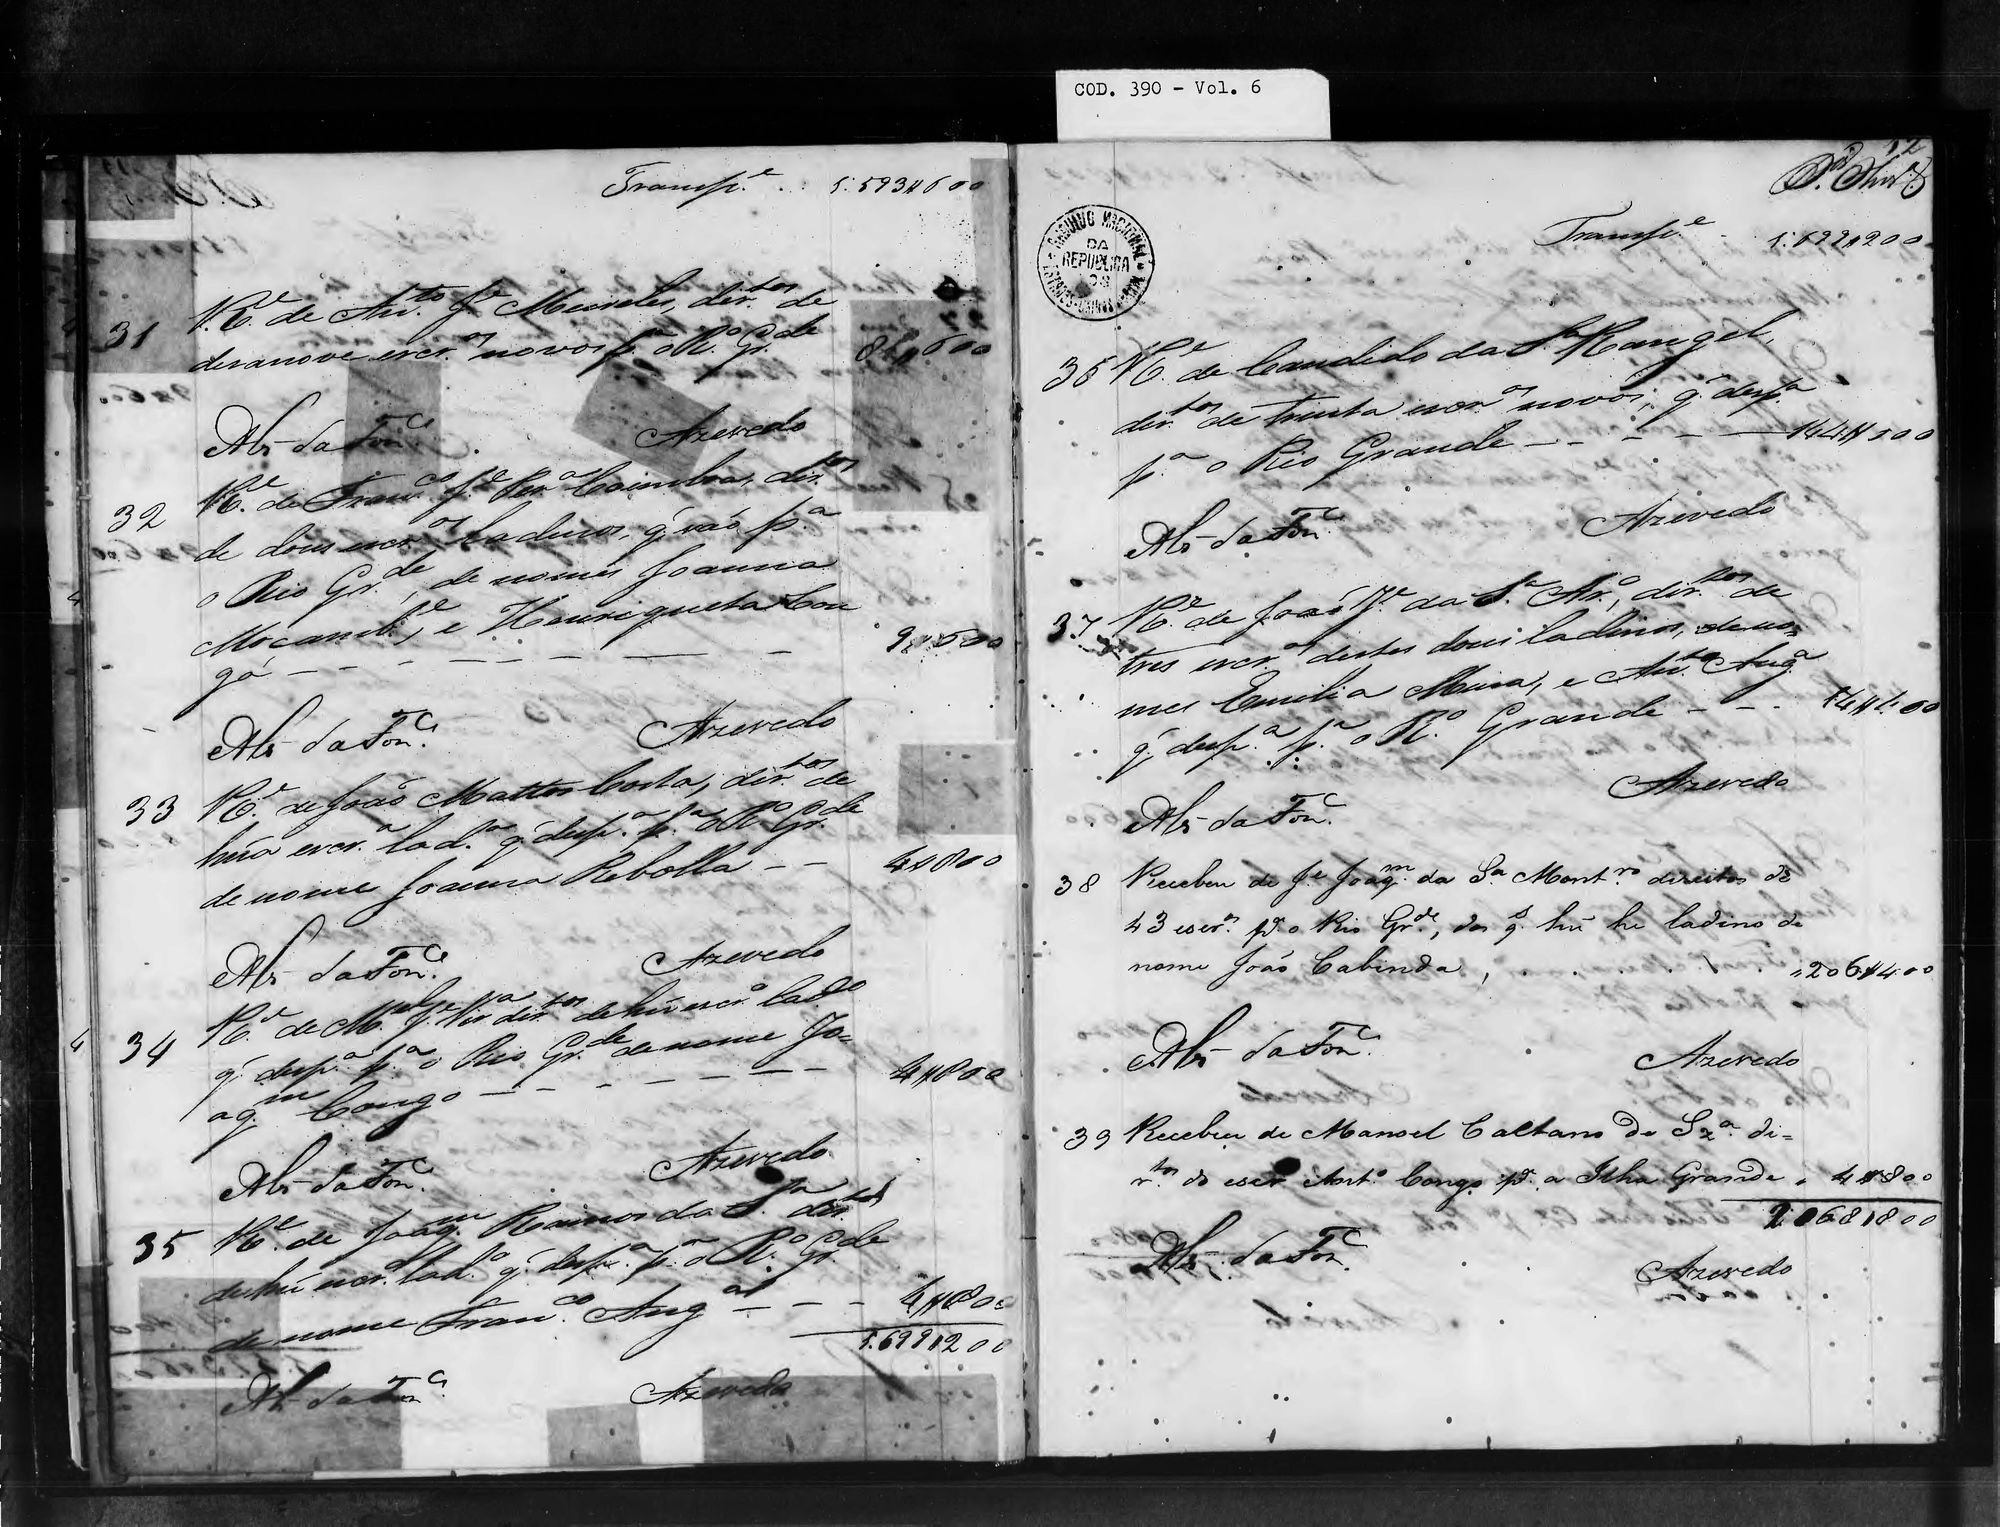 COD. 390 - Vol. 6
Transp.e 1:593#600
31 R.e de Ant.to J.e Meirelles, dir.tos de
dezanove escr.os novos p.a o R.o Gr.de
Als da Fon.ca Azevedo
32 R.e de Fran.co J.e Per.a Coimbra, dir.tos
de dous escr.os ladinos, q' vão p.a
o Rio Gr.de, de nomes Joanna
Mocamb.e, e Henriqueta Con
gá 9#600
Als da Fon.ca Azevedo
33 R.e de João Mattos Costa, dir.tos de
huã escr.a lad.a q' desp.a p.a o R.o Gr.de
de nome Joanna Rebolla 4#800
Als da Fon.ca Azevedo
34 R.e de M.el J.e dir.tos de hu escr.o lad.o
q' desp.a p.a o Rio Gr.de de nome Jo=
aq.m Congo 4#800
Als da Fon.ca Azevedo
35 R.e de Joaq.m Ramos da S.a dir.tos
de hu escr.o lad.o q' desp.a p.a o R.o Gr.de
de nome Fran.co Ang.a 4#800
1:699#200
Als da Fon.ca Azevedo
12
ARQUIVO NACIONAL
DA
REPUBLICA
Transp.e 1:699#200
36 R.e de Candido da S.a Rangel,
dir.tos de trinta escr.os novos, q' desp.a
p.a o Rio Grande 144#000
Als da Fon.ca Azevedo
37 R.e de João J.e da S.a Ar.o, dir.tos de
tres escr.os destes dous ladinos, de no=
mes Emilia Mina, e Ant.o Ang.a
q' desp.a p.a o R.o Grande 14#400
Als da Fon.ca Azevedo
38 Recebeu de J.e Joaq.m da S.a Mont.ro direitos de
43 escr.os p.a o Rio Gr.de, dos q.s hu he ladino de
nome João Cabinda, 206#400
Als da Fon.ca Azevedo
39 Recebeu de Manoel Caetano de Sz.a di=
r.tos do escr.o Ant.o Congo p.a a Ilha Grande 4#800
2:068#800
Als da Fon.ca Azevedo